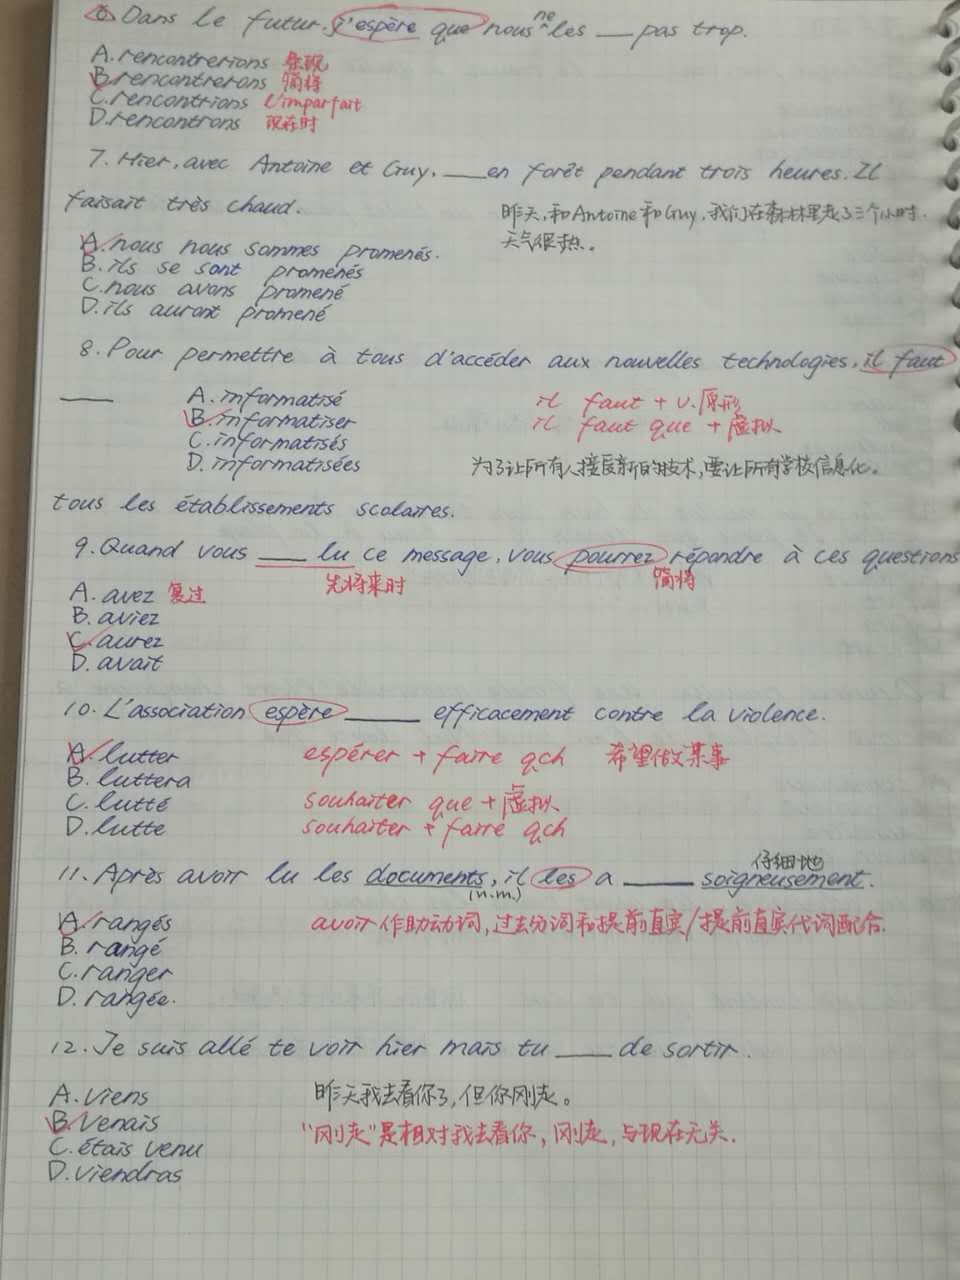 6 Dans le futur, j'espère que nous ne les ___ pas trop.
A. rencontrerions 条现
B. rencontrerons 简将
C. rencontrions l'imparfait
D. rencontrons 现在时
7. Hier, avec Antoine et Guy, ___ en forêt pendant trois heures. Il
faisait très chaud. 昨天,和Antoine和Guy,我们在森林里走了三个小时.
天气很热。
A. nous nous sommes promenés.
B. ils se sont promenés
C. nous avons promené
D. ils auront promené
8. Pour permettre à tous d'accéder aux nouvelles technologies, il faut
___ A. informatisé il faut + v.原形
B. informatiser il faut que + 虚拟
C. informatisés
D. informatisées 为了让所有人接触新的技术,要让所有学校信息化。
tous les établissements scolaires.
9. Quand vous ___ lu ce message, vous pourrez répondre à ces questions
A. avez 复过 先将来时 简将
B. aviez
C. aurez
D. avait
10. L'association espère ___ efficacement contre la violence.
A. lutter espérer + faire qch 希望做某事
B. luttera
C. lutté souhaiter que + 虚拟
D. lutte souhaiter + faire qch
仔细地
11. Après avoir lu les documents, il les a ___ soigneusement.
(n.m.)
A. rangés avoir作助动词,过去分词和提前直宾/提前直宾代词配合.
B. rangé
C. ranger
D. rangée.
12. Je suis allé te voir hier mais tu ___ de sortir.
A. viens 昨天我去看你了,但你刚走。
B. venais "刚走"是相对我去看你,刚走,与现在无关.
C. étais venu
D. viendras